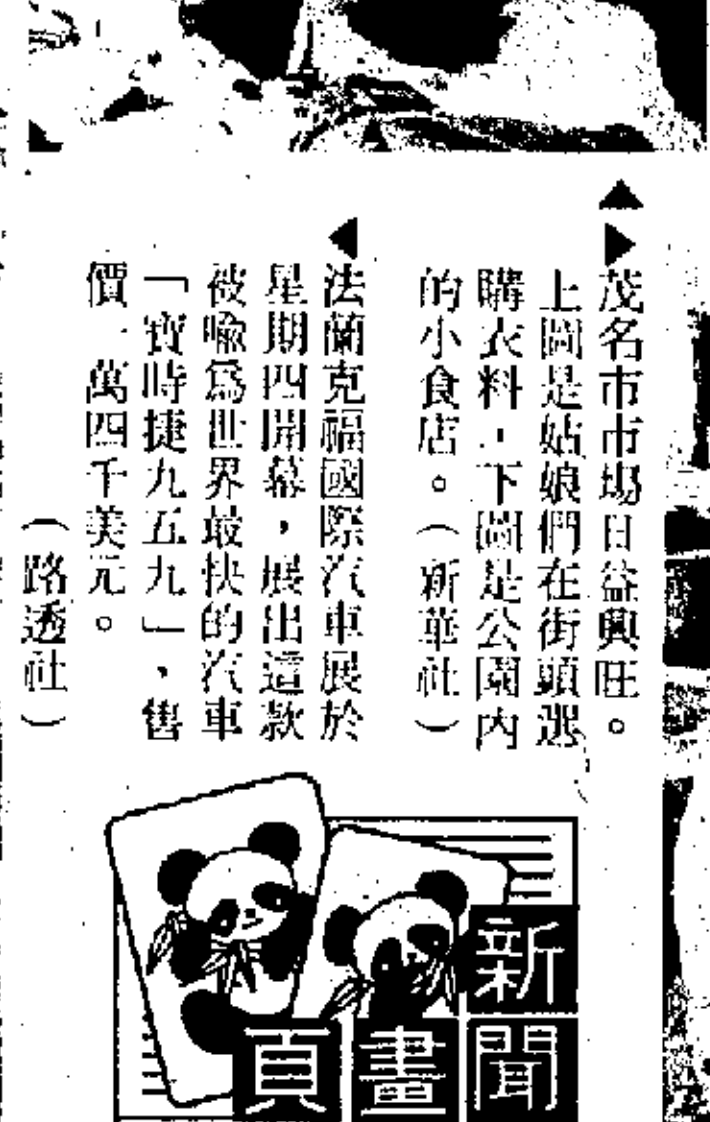 茂名市市場日益興旺。
上圖是姑娘們在街頭選
購衣料,下圖是公園內
的小食店。(新華社)
法蘭克福國際汽車展於
星期四開幕,展出這款
被喻爲世界最快的汽車
「寶時捷九五九」、售
價一萬四千美元。
(路透社)
新聞
畫
頁